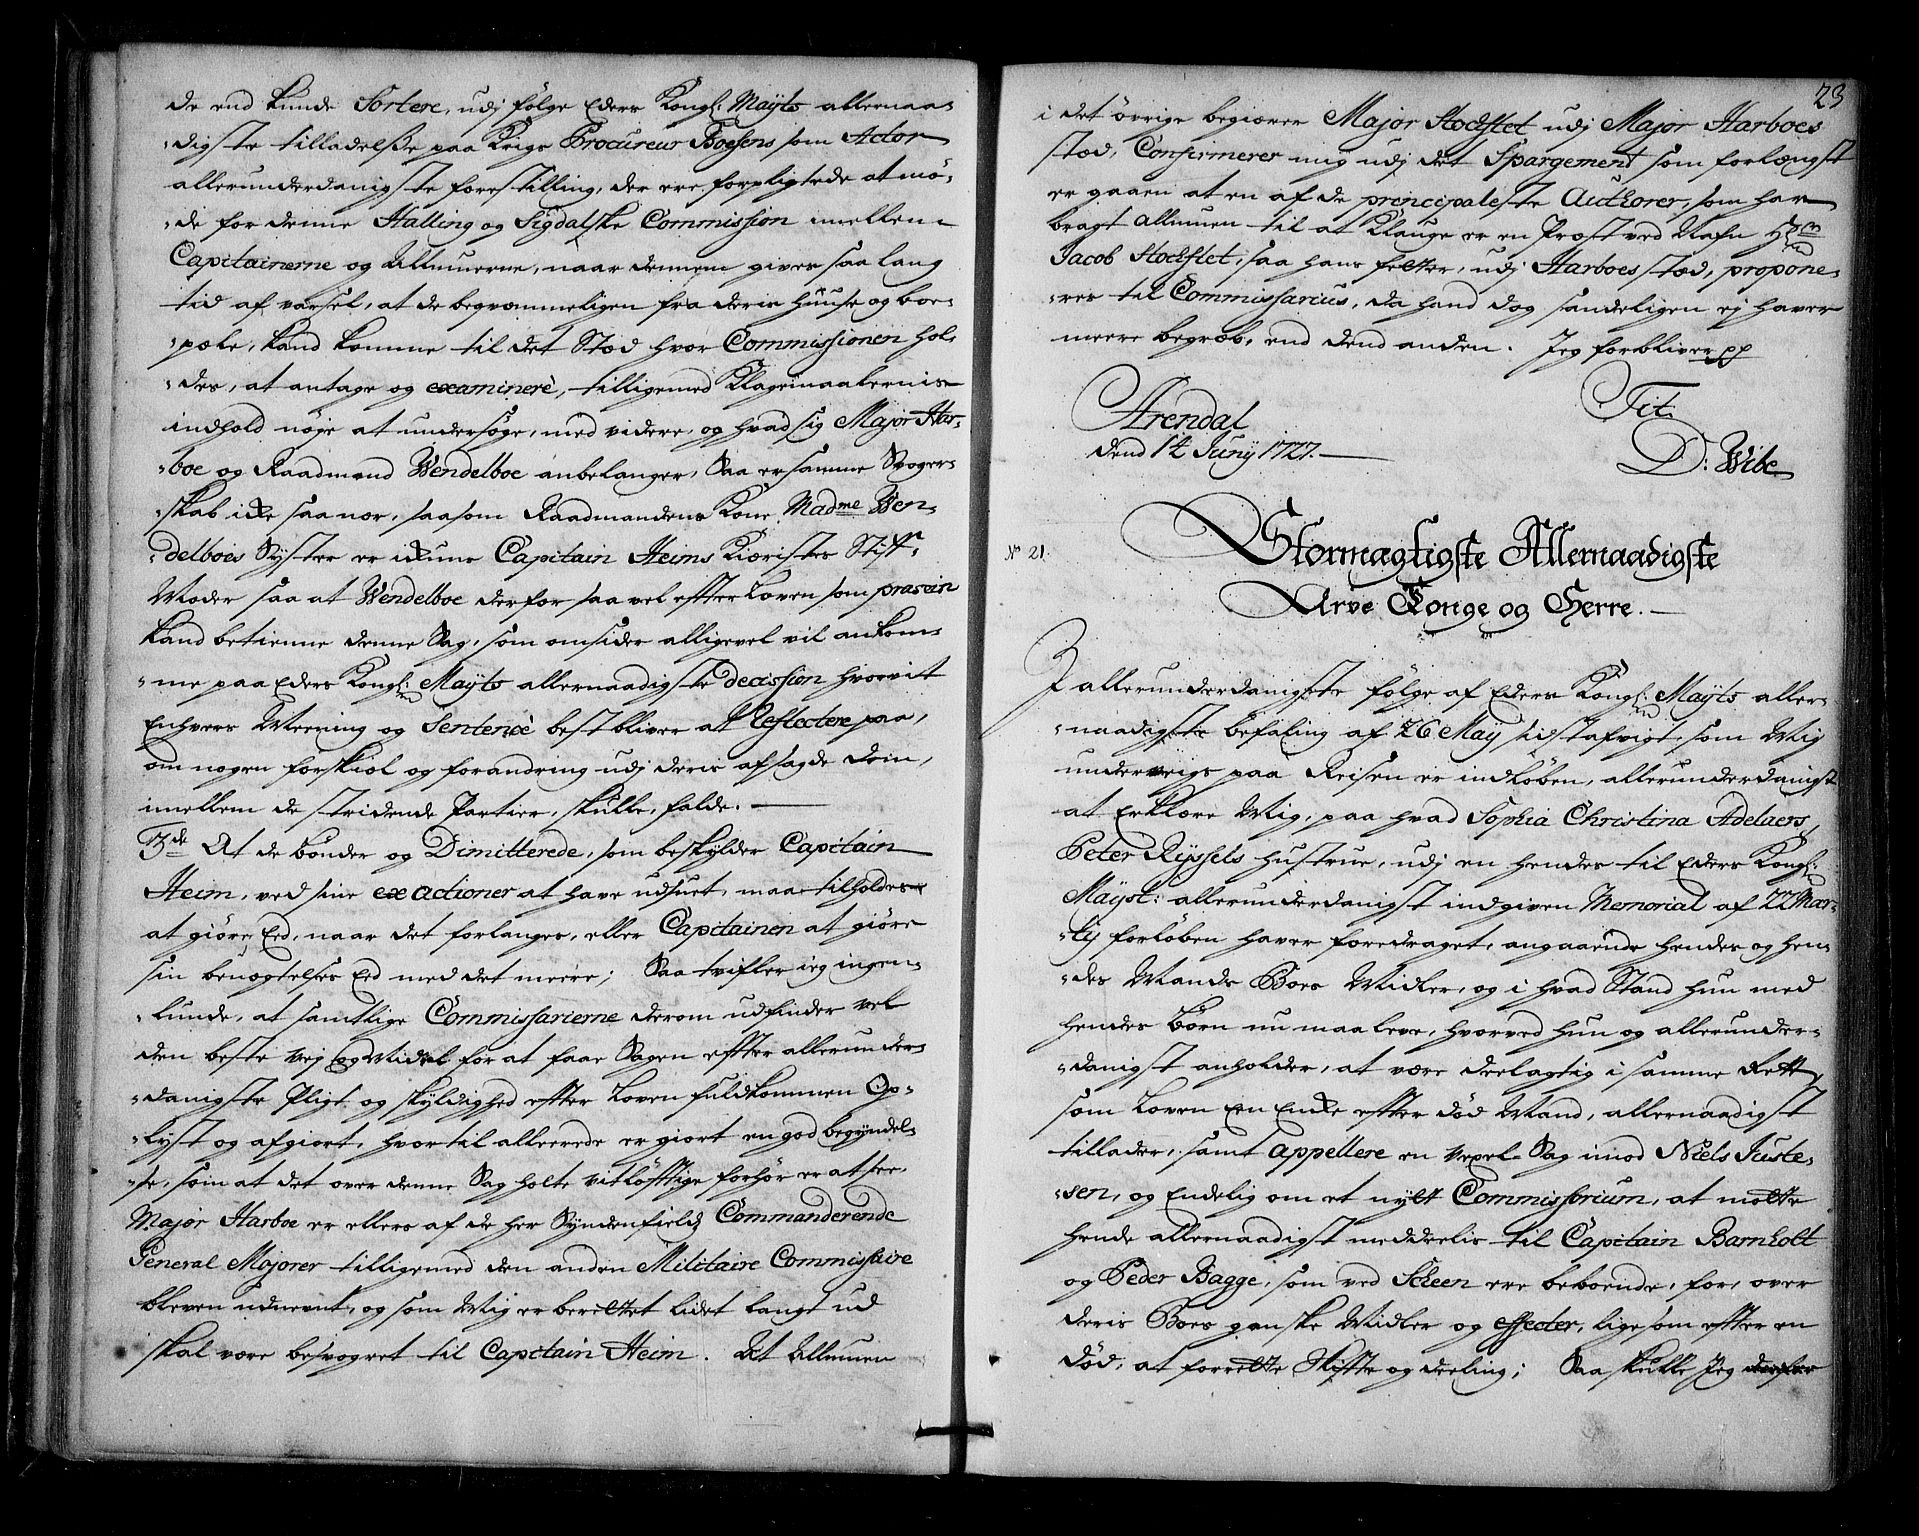 de end kunde Sortere, udj følge Eders Kongl: Mayts allernaa-
digste tilladelse paa Krigs Procureur Boesens som Actor
allerunderdanigste forestilling, der ere forpligtede at mö-
de for denne Halling og Sigdalske Commission imellem
Capitainerne og Almuerne, naar dennem gives saa lang
tid af varsel, at de begvemmeligen fra deris Huuse og boe-
pæle, kand komme til det Stæd hvor Commissionen hol-
des, at antage og examinere, tilligemed Klagemaalernis
indhold nøje at undersøge, med videre, og hvad sig Major Har-
boe og Raadmand Wendelboe anbelanger, Saa er samme Svoger-
skab ikke saa nær, saasom Raadmandens Kone Madme Wen-
delboes Syster er ikkun Capitain Heims Kiæristes Stiff-
Moder saa at Wendelboe derfor saa vel efter Loven som
kand betienne denne Sag, som omsider alligevel vil ankom-
me paa Eders Kongl: Mayts allernaadigste decission hvorvit
Enhvers Meening og Sentence best bliver at Reflectere paa,
om nogen forskiæl og forandring udj deris afsagde dom,
imellem de stridende Partier, skulle, falde.
3de At de bønder og Dimitterede, som beskylder Capitain
Heim, ved sine exactioner at have udsuet, maa tilholdes
at giøre Eed, naar det forlanges, eller Capitainen at giøre
sin benægtelses Eed med det meere; Saa tvifler ieg ingen-
lunde, at samtlige Commissarierne derom udfinder vel
den beste Vej og Middel for at faae Sagen efter allerunder-
danigste Pligt og skyldighed efter Loven fuldkommen Op-
lyst og afgiort, hvortil allereede er giort en god begyndel-
se, som at det over denne Sag holte vitløftige forhør er at see,
Major Harboe er ellers af de her Syndenfields Commanderende
General Majorer tilligemed den anden Militaire Commissaire
bleven udnevnt, og som Mig er berettet lidet langt ud
skal være besvogret til Capitain Heim. At Almuen
23
i det övrige begiærer Major Stockflet udj Major Harboes
stæd, Confirmerer mig udj det Spargement som forlængst
er gaaen at en af de principaleste Authorer, som har
bragt Almuen til at Klauge er en Præst ved Nafn Hr
Jacob Stockflet, saa hans fetter, udj Harboes stæd, propone-
res til Commissarius, da hand dog sandeligen ej haver
meere begreb, end dend anden. Jeg forbliver pp
Arendal
dend 14 Juny 1727.
Tit:
D: Wibe
No 21.
Stormægtigste Allernaadigste
Arve Konge og Herre.
I allerunderdanigste følge af Eders Kongl: Mayts aller-
naadigste befaling af 26 May sidstafvigt, som Mig
underveigs paa Reisen er indløben, allerunderdanigst
at Erklære Mig, paa hvad Sophia Christina Adelaers,
Peter Ryssels Hustrue, udj en hendes til Eders Kongl:
Mayst: allerunderdanigst indgiven Memorial af 22 Mar-
tij forløben haver foredraget, angaaende hendes og hen-
des Mands Boes Midler, og i hvad Stand hun med
hendes børn nu maa leve, hvorved hun og allerunder-
danigst anholder, at være deelagtig i samme Rett,
som Loven Een Enke efter død Mand, allernaadigst
tillader, samt appellere en Vexel Sag imod Niels Juste-
sen, og Endelig om et nytt Commissorium, at maatte
hende allernaadigst meddeelis til Capitain Barnholt
og Peder Bagge, som ved Scheen ere beboende, for, over
deris Boes ganske Midler og effecter, lige som efter en
død, at forrette Skifte og deeling; Saa skulle Jeg